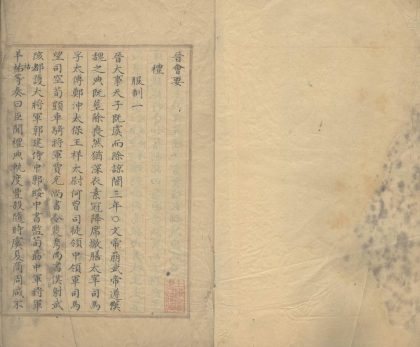 晉會要
禮
服制一
晉大事天子既虞而除諒闇三年○文帝崩武帝遵漢
魏之典既葬除喪然猶深衣素冠降席撤膳太宰司馬
孚太傅鄭沖太保王祥太尉何曾司徒領中領軍司馬
望司空荀顗車騎將軍賈充尚書令裴秀尚書僕射武
陔都護大將軍郭建侍中郭綏中書監荀勗中軍將軍
羊祜等奏曰臣聞禮典軌度豐殺隨時虞夏商周咸不